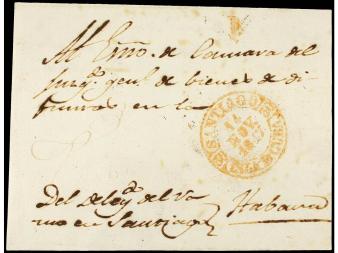 Al Essno. de Camara del
Juzgo. genl. de bienes de di
funtos en la
SANTIAGO DE CUBA
14
NOV.
Del Delego. del Ra
mo en Santiago
Habana